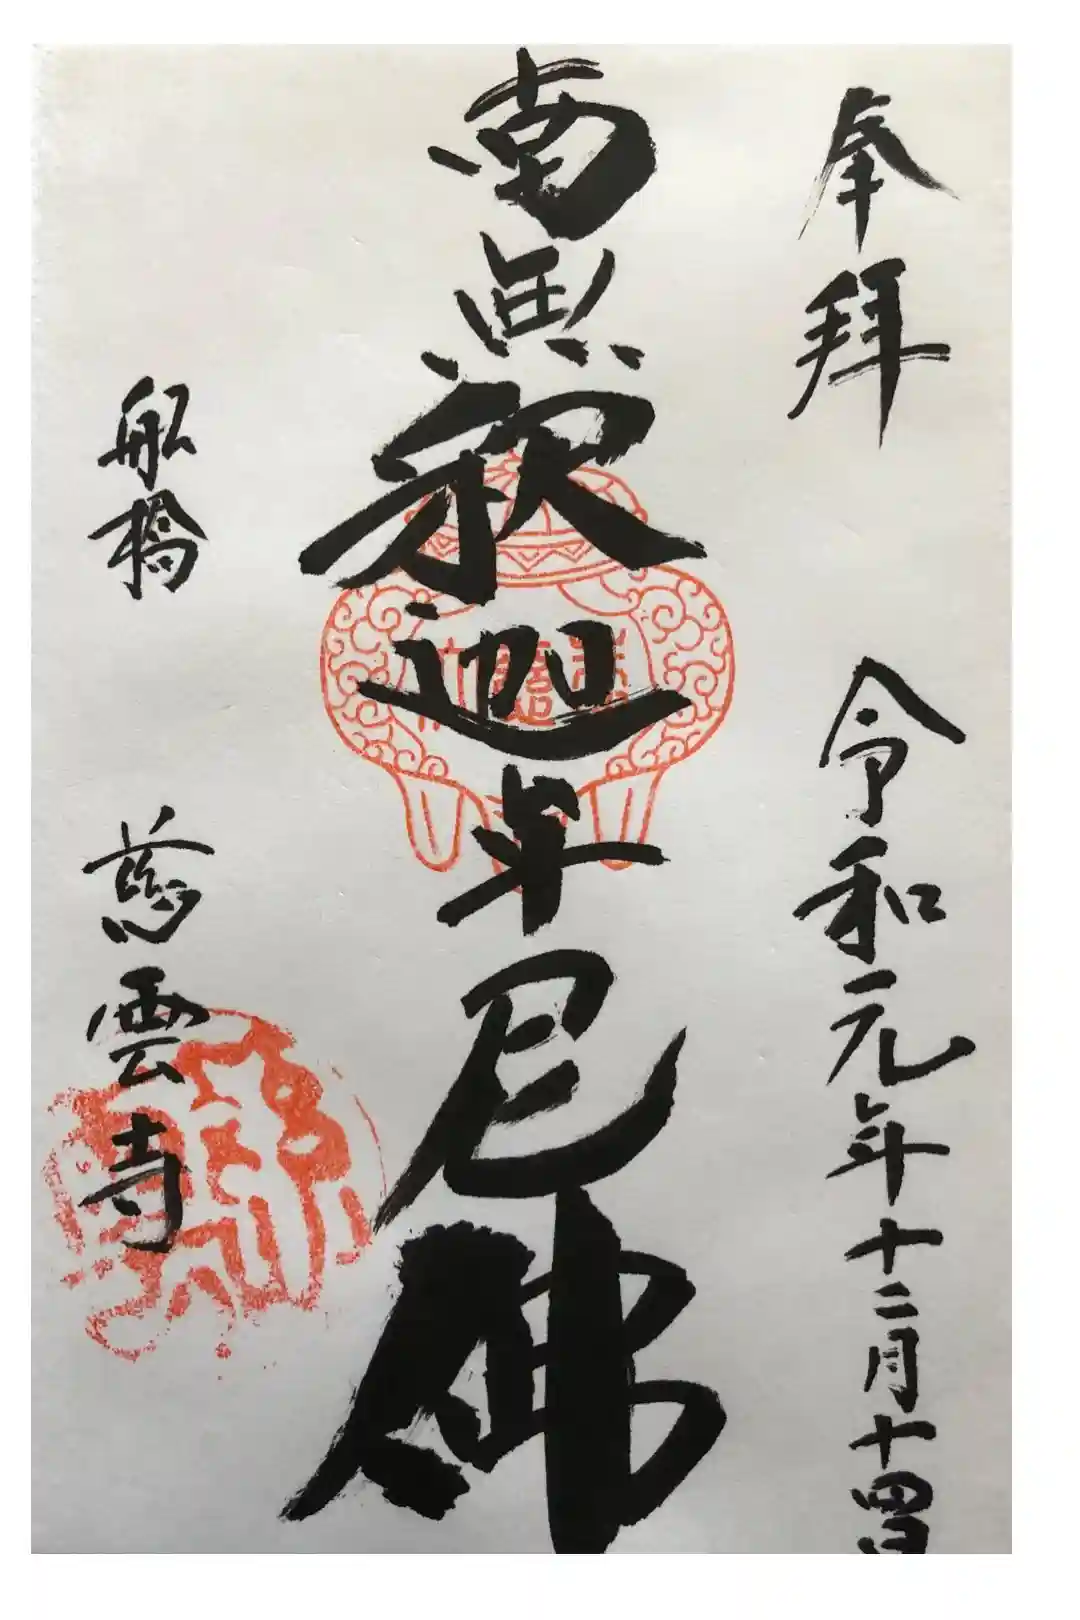 奉拝　令和元年十二月十四日
南無釈迦牟尼佛
船橋　慈雲寺